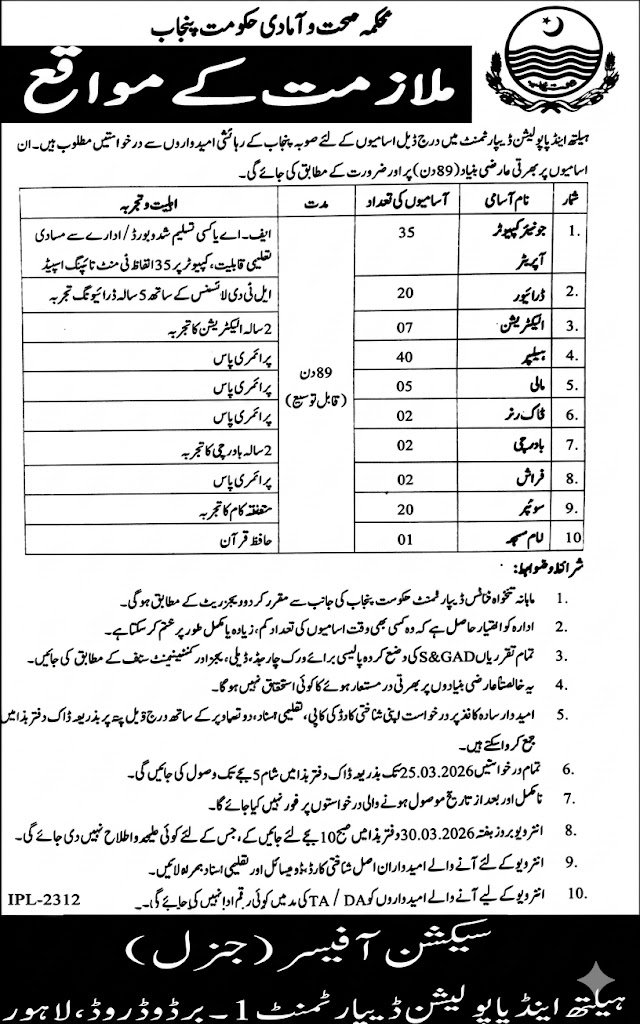 محکمہ صحت و آبادی حکومت پنجاب
ملازمت کے مواقع
ہیلتھ اینڈ پاپولیشن ڈیپارٹمنٹ میں درج ذیل اسامیوں کے لئے صوبہ پنجاب کے رہائشی امیدواروں سے درخواستیں مطلوب ہیں۔ ان
اسامیوں پر بھرتی عارضی بنیاد (89 دن) پر اور ضرورت کے مطابق کی جائے گی۔
شمار نام آسامی آسامیوں کی تعداد مدت اہلیت و تجربہ
1. جونیئر کمپیوٹر 35 ایف۔ اے یا کسی تسلیم شدہ بورڈ / ادارے سے مساوی
آپریٹر تعلیمی قابلیت، کمپیوٹر پر 35 الفاظ فی منٹ ٹائپنگ اسپیڈ
2. ڈرائیور 20 ایل ٹی وی لائسنس کے ساتھ 5 سالہ ڈرائیونگ تجربہ
3. الیکٹریشن 07 2 سالہ الیکٹریشن کا تجربہ
4. ہیلپر 40 پرائمری پاس
89 دن
5. مالی 05 پرائمری پاس
(قابل توسیع)
6. ڈاک رنر 02 پرائمری پاس
7. باورچی 02 2 سالہ باورچی کا تجربہ
8. فراش 02 پرائمری پاس
9. سوئپر 20 متعلقہ کام کا تجربہ
10 امام مسجد 01 حافظ قرآن
شرائط و ضوابط:
1. ماہانہ تنخواہ فنانس ڈیپارٹمنٹ حکومت پنجاب کی جانب سے مقرر کردہ ویجز ریٹ کے مطابق ہوگی۔
2. ادارہ کو اختیار حاصل ہے کہ وہ کسی بھی وقت اسامیوں کی تعداد کم، زیادہ یا مکمل طور پر ختم کر سکتا ہے۔
3. تمام تقرریاں S&GAD کی وضع کردہ پالیسی برائے ورک چارجڈ، ڈیلی، ویجز اور کنٹینجنٹ سٹاف کے مطابق کی جائیں۔
4. یہ خالصتاً عارضی بنیادوں پر بھرتی در مستعار ہوئے کا کوئی استحقاق نہیں ہو گا۔
5. امیدوار سادہ کاغذ پر درخواست اپنی شناختی کارڈ کی کاپی، تعلیمی اسناد، دو تصاویر کے ساتھ درج ذیل پتہ پر بذریعہ ڈاک دفتر ہذا میں
جمع کروا سکتے ہیں۔
6. تمام درخواستیں 25.03.2026 تک بذریعہ ڈاک دفتر ہذا میں شام 5 بجے تک وصول کی جائیں گی۔
7. نامکمل اور بعد از تاریخ موصول ہونے والی درخواستوں پر غور نہیں کیا جائے گا۔
8. انٹرویو بروز ہفتہ 30.03.2026 دفتر ہذا میں صبح 10 بجے لئے جائیں گے، جس کے لئے کوئی علیحدہ اطلاع نہیں دی جائے گی۔
9. انٹرویو کے لئے آنے والے امیدواران اصل شناختی کارڈ، ڈومیسائل اور تعلیمی اسناد ہمراہ لائیں۔
10. انٹرویو کے لیے آنے والے امیدواروں کو TA / DA کی مد میں کوئی رقم ادا نہیں کی جائے گی۔۔
IPL-2312
سیکشن آفیسر (جنرل)
ہیلتھ اینڈ پاپولیشن ڈیپارٹمنٹ 1۔ برڈوڈ روڈ، لاہور